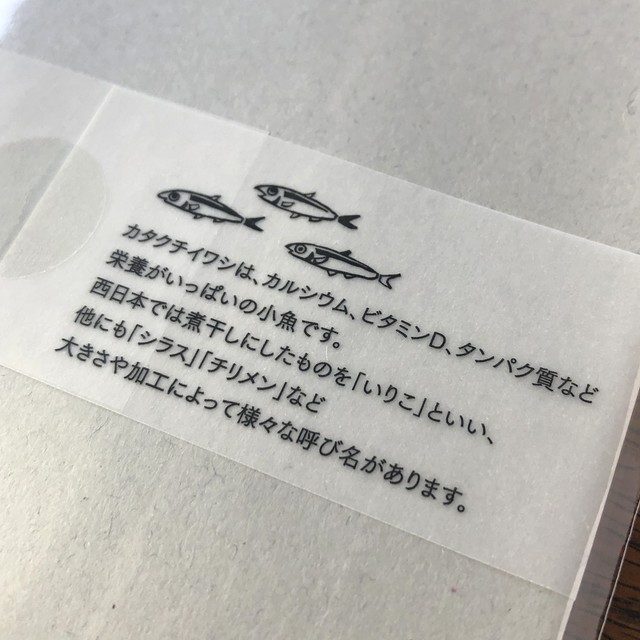 カタクチイワシは、カルシウム、ビタミンD、タンパク質など
栄養がいっぱいの小魚です。
西日本では煮干しにしたものを「いりこ」といい、
他にも「シラス」「チリメン」など
大きさや加工によって様々な呼び名があります。